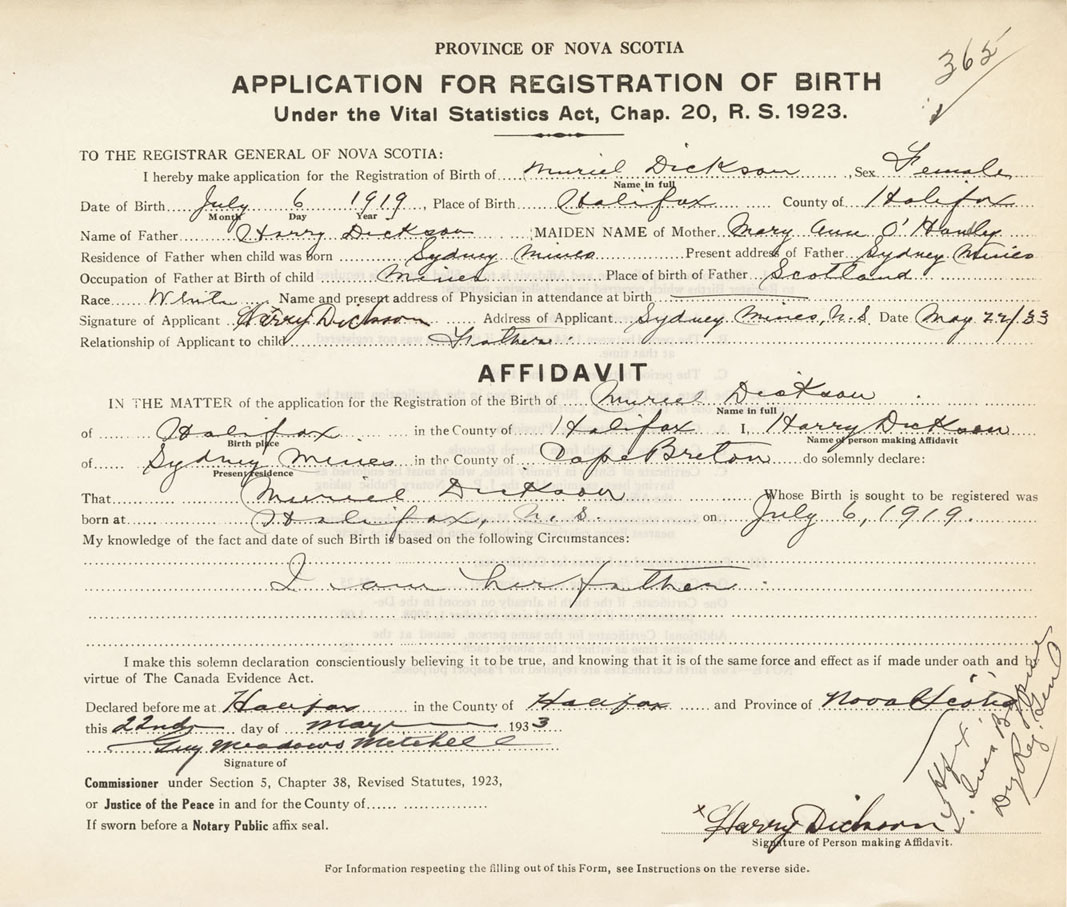 PROVINCE OF NOVA SCOTIA
365
APPLICATION FOR REGISTRATION OF BIRTH
Under the Vital Statistics Act, Chap. 20, R. S. 1923.
TO THE REGISTRAR GENERAL OF NOVA SCOTIA:
I hereby make application for the Registration of Birth of Muriel Dickson, Sex Female
Name in full
Date of Birth July 6 1919, Place of Birth Halifax County of Halifax
Month Day Year
Name of Father Harry Dickson MAIDEN NAME of Mother Mary Ann O'Hanley
Residence of Father when child was born Sydney Mines Present address of Father Sydney Mines
Occupation of Father at Birth of child Mines Place of birth of Father Scotland
Race White Name and present address of Physician in attendance at birth
Signature of Applicant Harry Dickson Address of Applicant Sydney Mines, N.S. Date May 22/33
Relationship of Applicant to child Father
AFFIDAVIT
IN THE MATTER of the application for the Registration of the Birth of Muriel Dickson
Name in full
of Halifax in the County of Halifax I, Harry Dickson
Birth place Name of person making Affidavit
of Sydney Mines in the County of Cape Breton do solemnly declare:
Present residence
That Muriel Dickson Whose Birth is sought to be registered was
born at Halifax, N.S. on July 6, 1919.
My knowledge of the fact and date of such Birth is based on the following Circumstances:
I am her father.
I make this solemn declaration conscientiously believing it to be true, and knowing that it is of the same force and effect as if made under oath and by
virtue of The Canada Evidence Act.
Declared before me at Halifax in the County of Halifax and Province of Nova Scotia
this 22nd day of May 1933
Guy Meadows Mitchell
Signature of
Commissioner under Section 5, Chapter 38, Revised Statutes, 1923,
or Justice of the Peace in and for the County of
If sworn before a Notary Public affix seal.
x Harry Dickson
Signature of Person making Affidavit.
Dy Reg. Gen
For Information respecting the filling out of this Form, see Instructions on the reverse side.